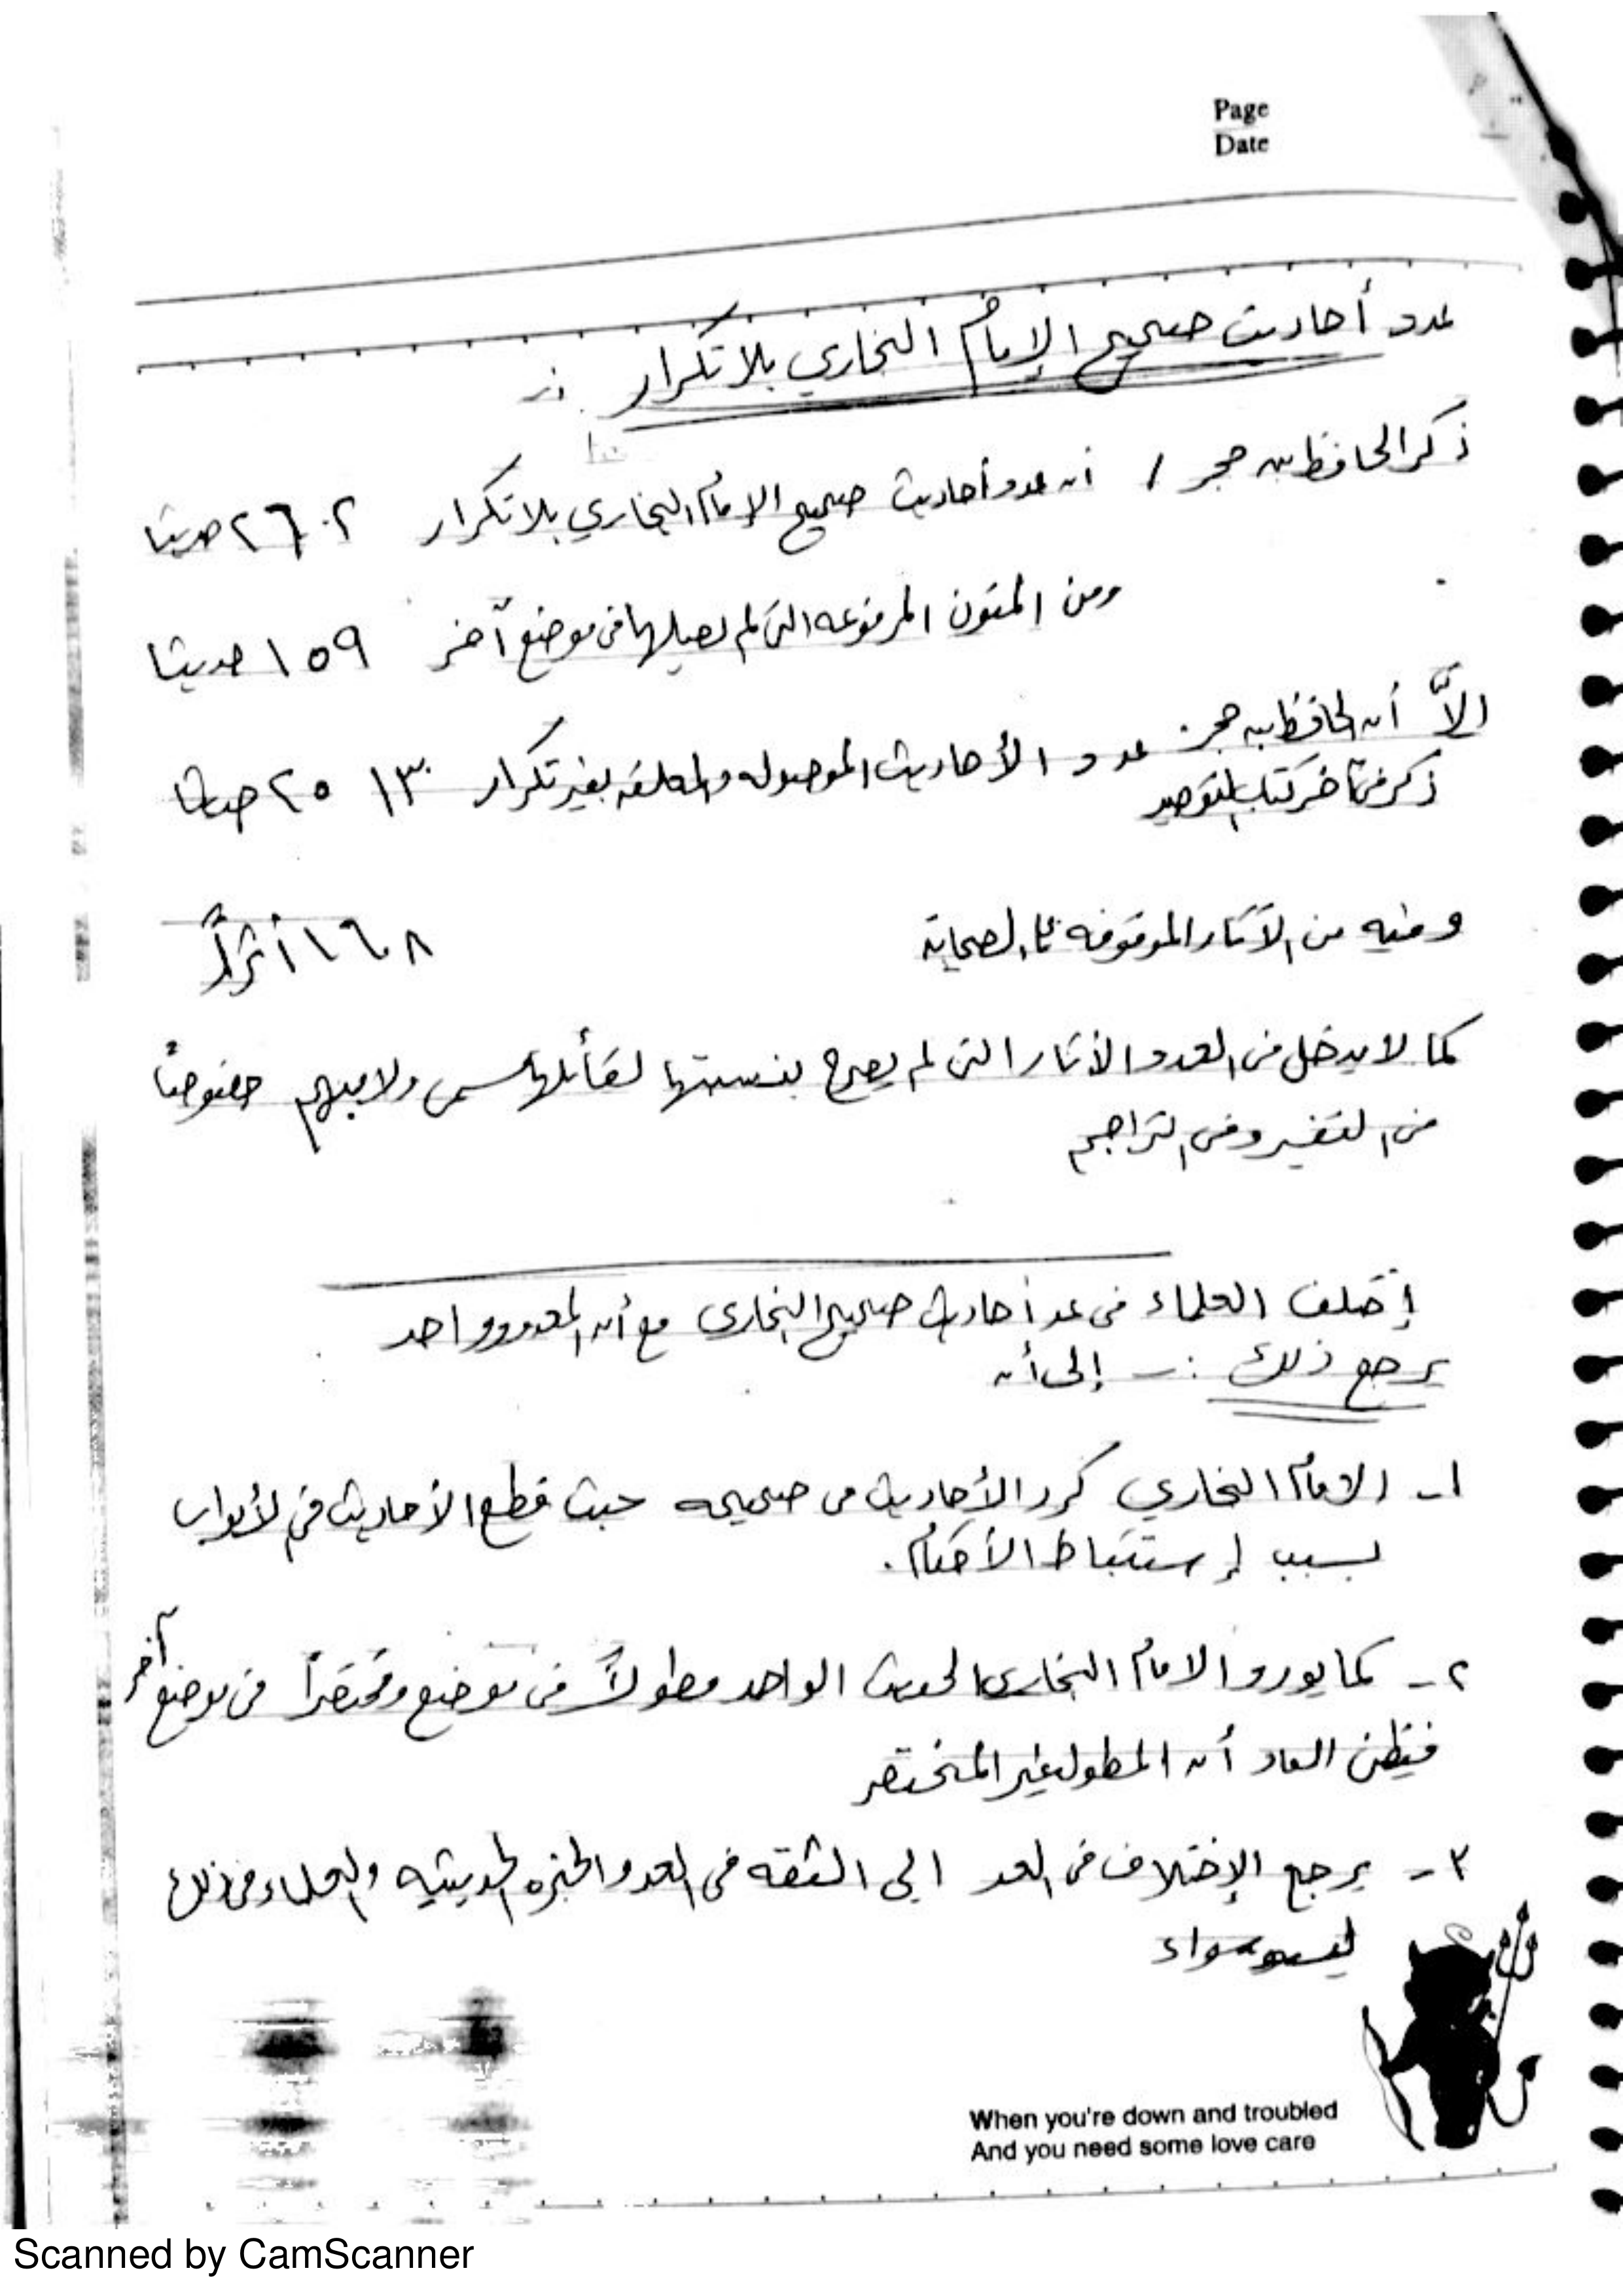 Page
Date
عدد أحاديث صحيح الإمام البخاري بلا تكرار :-
ذكر الحافظ بن حجر / أن عدد أحاديث صحيح الإمام البخاري بلا تكرار ٢٦٠٢ حديثا
ومن المتون المرفوعه التى لم يصلها فى موضع آخر ١٥٩ حديثا
إلاَّ أن الحافظ بن حجر عدد الأحاديث الموصوله والمعلقه بغير تكرار ٢٥١٣ حديثا
ذكر فى آخر كتاب التوحيد
وفيه من الآثار الموقوفه الصحابة ١٦٠٨ أثراً
كما لا يدخل فى العدد الأثار التى لم يصرح بنسبتها لقائلها مسمى ولا مبهم خصوصاً
فى التفسير وفى التراجم
إختلف العلماء فى عد أحاديث صحيح البخارى مع أن المعدود واحد
يرجع ذلك :- إلى أن
١- الامام البخاري كرر الأحاديث فى صحيحه حيث قطع الأحاديث فى الأبواب
بسبب إستنباط الأحكام .
٢- كما يورد الامام البخارى الحديث الواحد مطولاً فى موضع ومختصراً فى موضع آخر
فيظن العاد أن المطول غير المختصر
٣- يرجع الإختلاف فى العد الى الثقه فى العد والخبره الحديثيه والعلماء فى ذلك
ليسو سواء
When you're down and troubled
And you need some love care
Scanned by CamScanner